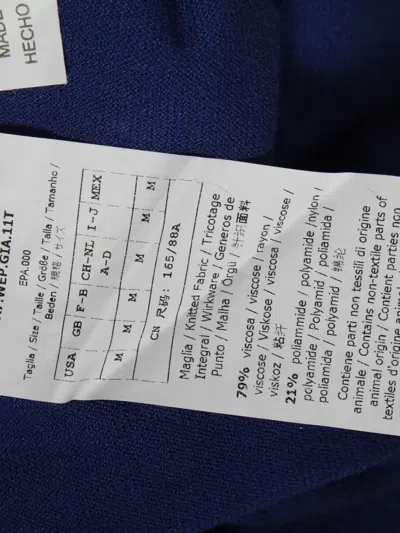 MADE
HECHO
.WEP.GIA.11T
EPA.000
Taglia / Size / Taille / Größe / Talla / Tamanho /
Beden / 規格 / サイズ
USA GB F-B CH-NL I-J MEX
A-D
M M M M M M
CN 尺码: 165/88A
Maglia / Knitted Fabric / Tricotage
Integral / Wirkware / Generos de
Punto / Malha / Orgu / 针织面料
79% viscosa / viscose / rayon /
viscose / Viskose / viscosa / viscose /
viskoz / 黏纤
21% poliammide / polyamide /nylon /
polyamide / Polyamid / poliamida /
poliamida / polyamid / 锦纶
Contiene parti non tessili di origine
animale / Contains non-textile parts of
animal origin / Contient parties non
textiles d'origine